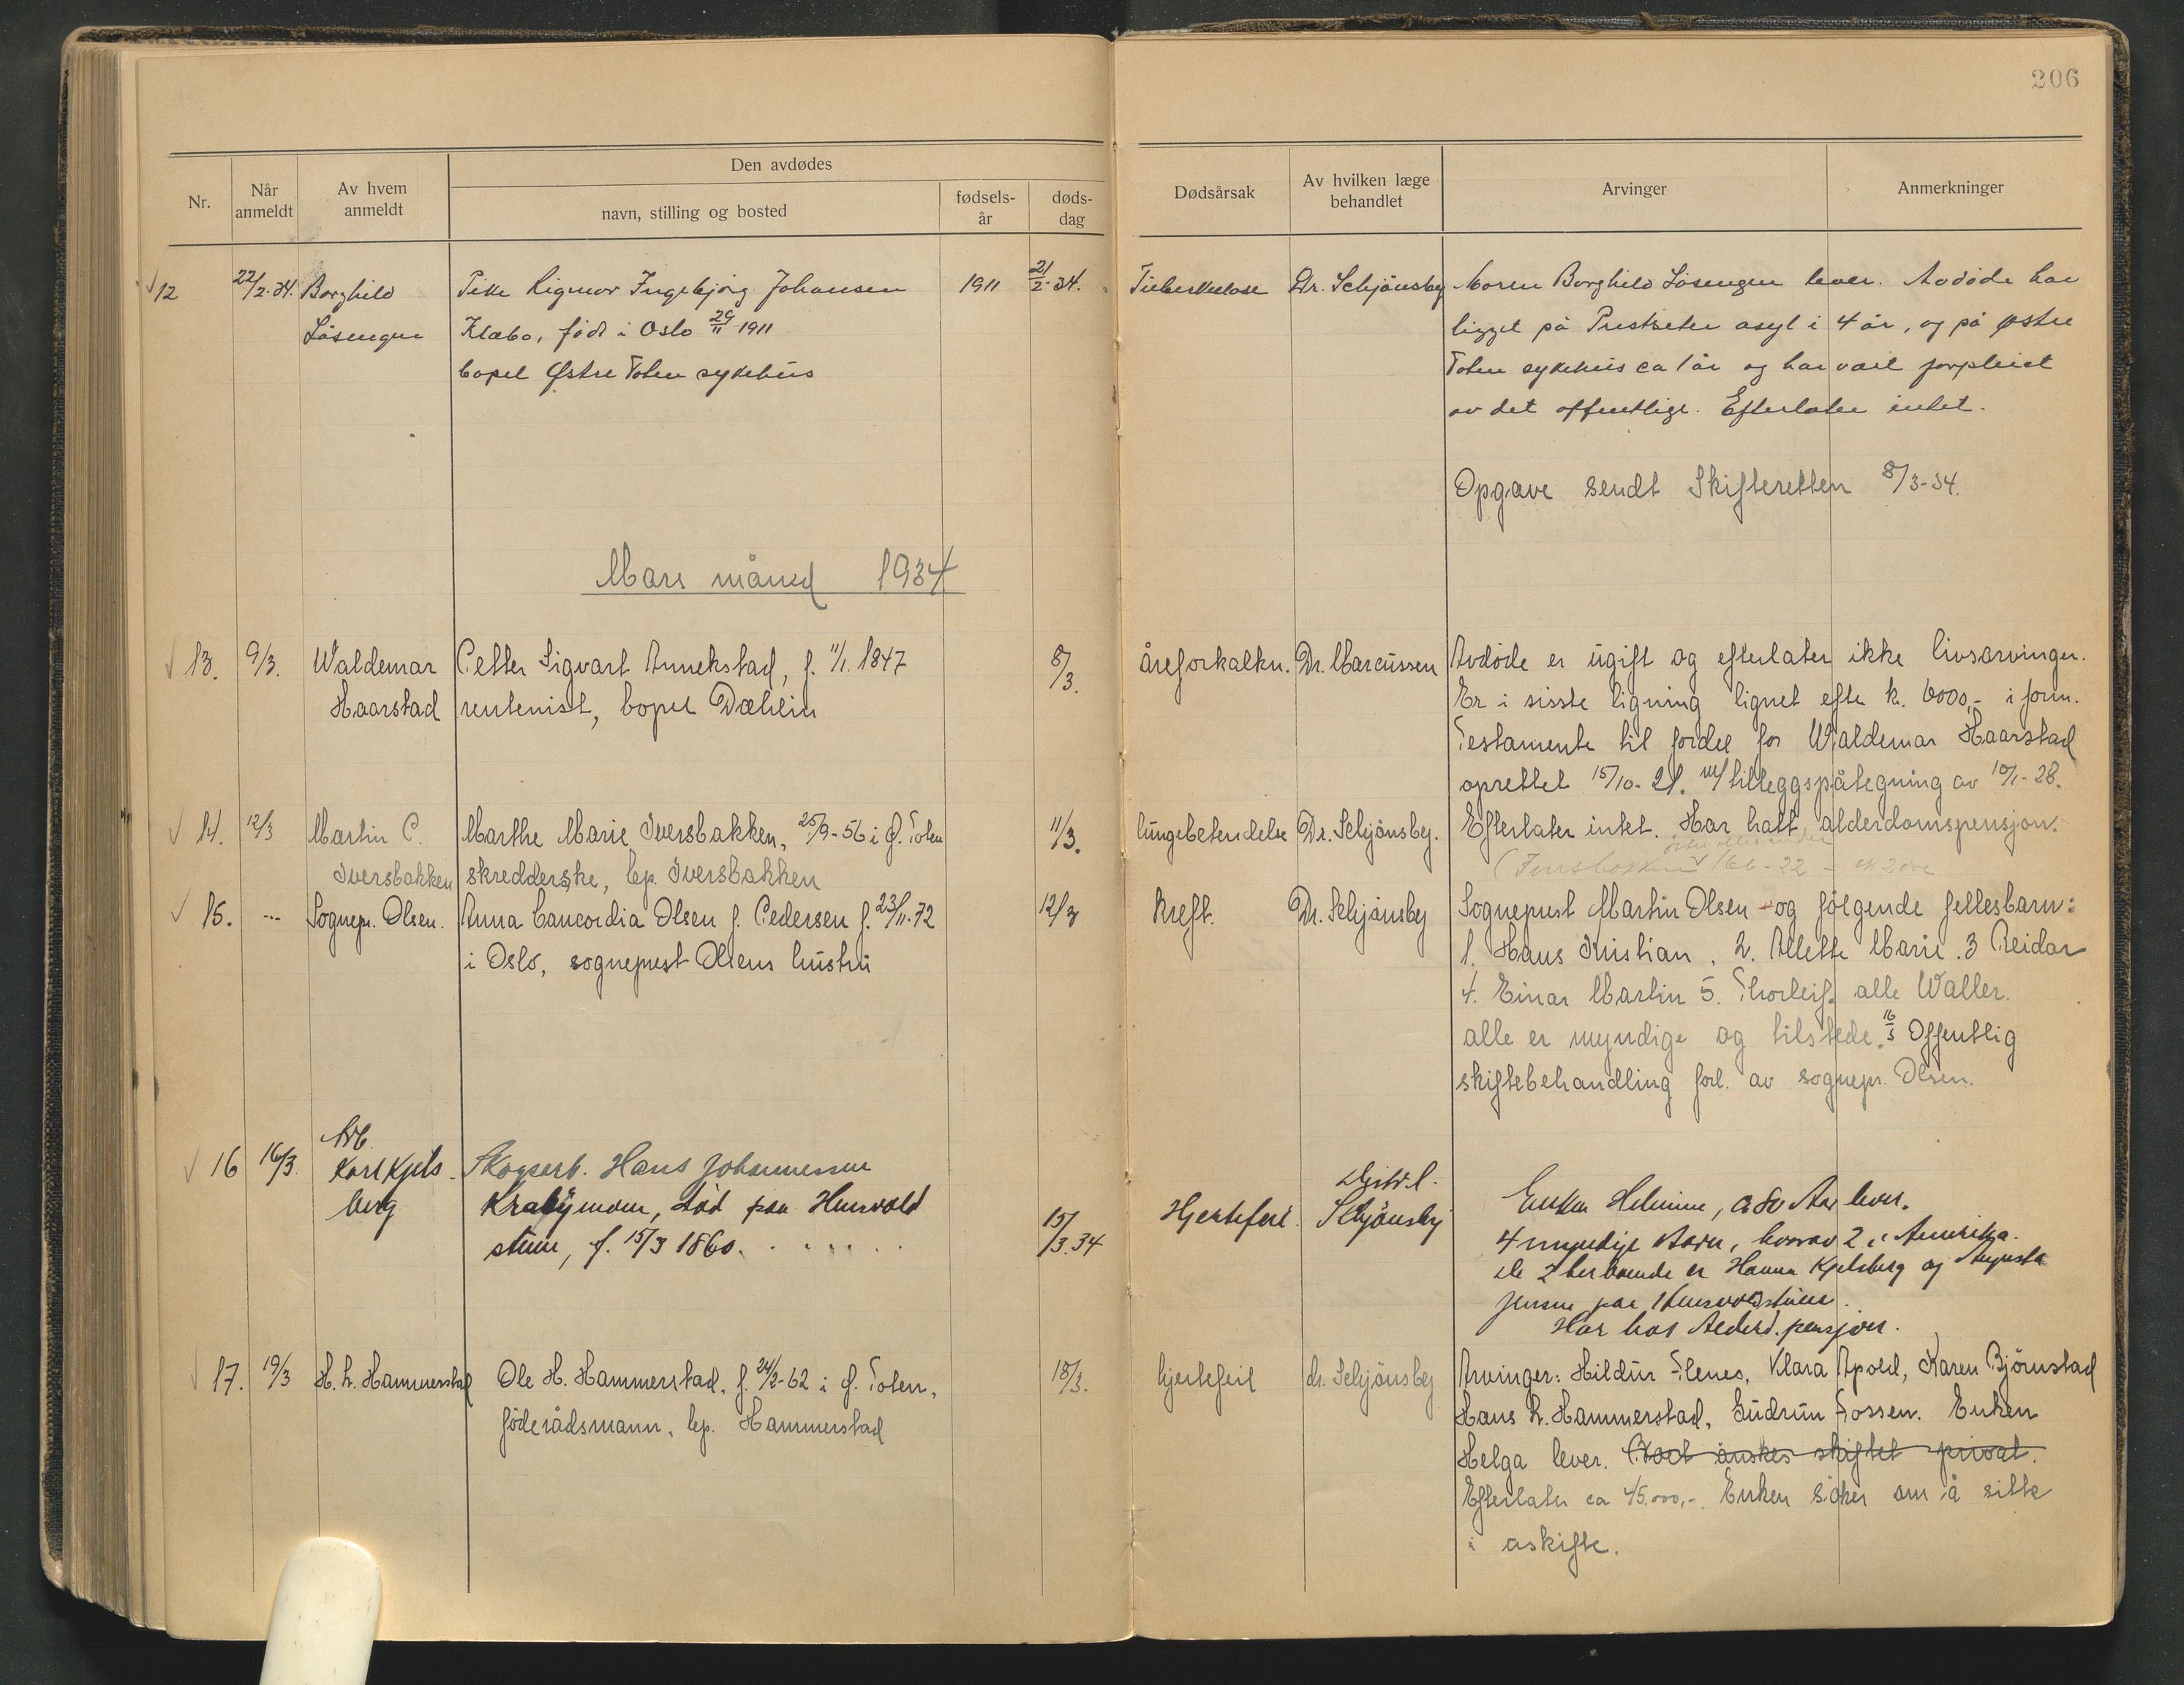 206
Den avdødes
Nr.
Når anmeldt
Av hvem anmeldt
navn, stilling og bosted
fødsels-år
døds-dag
Dødsårsak
Av hvilken læge behandlet
Arvinger
Anmerkninger
12 22/2-34. Borghild Pike Rigmor Ingebjørg Johansen 1911 21/2-34. Tuberkulose Dr. Schjønsby Moren Borghild Løsengen lever. Avdøde har
Løsengen Klæbo, født i Oslo 29/11 1911 ligget på Prestseter asyl i 4 år, og på Østre
bopel Østre Toten sykehus Toten sykehus ca 1 år og har vært forpleiet
av det offentlige. Efterlater intet.
Opgave sendt Skifteretten 8/3-34.
Mars måned 1934
13. 9/3. Waldemar Petter Sigvart Annekstad, f. 11/1. 1847 8/3. åreforkalkn. Dr. Marcussen Avdøde er ugift og efterlater ikke livsarvinger.
Haarstad rentenist, bopel Dæhlin Er i sisste ligning lignet efte kr. 6000,- i form.
Testamente til fordel for Waldemar Haarstad
oprettet 15/10-21. m/ tilleggspåtegning av 10/1-28.
14. 12/3 Martin P. Marthe Marie Iversbakken, 25/9-56 i Ø. Toten 11/3. lungebetendelse Dr. Schjønsby. Efterlater intet. Har hatt alderdomspensjon.
Iversbakken skredderske, bp. Iversbakken 166-22
15. --- Sognepr. Olsen. Anna Concordia Olsen f. Pedersen f. 23/11-72 12/3 kreft. Dr. Schjønsby Sogneprest Martin Olsen og følgende fellesbarn:
i Oslo, sogneprest Olsens hustru 1. Hans Kristian, 2. Allette Marie. 3 Reidar
4. Einar Martin 5. Thorleif. alle Waller.
alle er myndige og tilstede. 16/3 Offentlig
skiftebehandling forl. av sognepr. Olsen.
16 16/3. Arb. Karl Kjels- Skogsarb. Hans Johannessen Distr.l.
berg Krabymoen, død paa Hensvold 15/3.34 Hjertefeil. Schjønsby Enken Helmine, ca 80 Aar lever.
stuen, f. 15/3 1860. 4 myndige Barn, hvorav 2 i Amerika.
De 2 herboende er Hanna Kjelsberg og Augusta
Jensen paa Hensvoldstuen.
Har hat Alderd.pensjon.
17. 19/3 H. L. Hammerstad Ole H. Hammerstad, f. 24/2-62 i Ø. Toten, 18/3. hjertefeil dr. Schjønsby Arvinger: Hildur Flenes, Klara Apold, Karen Bjørnstad
føderådsmann, bp. Hammerstad Hans L. Hammerstad, Gudrun Fossen. Enken
Helga lever. Boet ønskes skiftet privat.
Efterlater ca 45.000,-. Enken søker om å sitte
i uskifte.